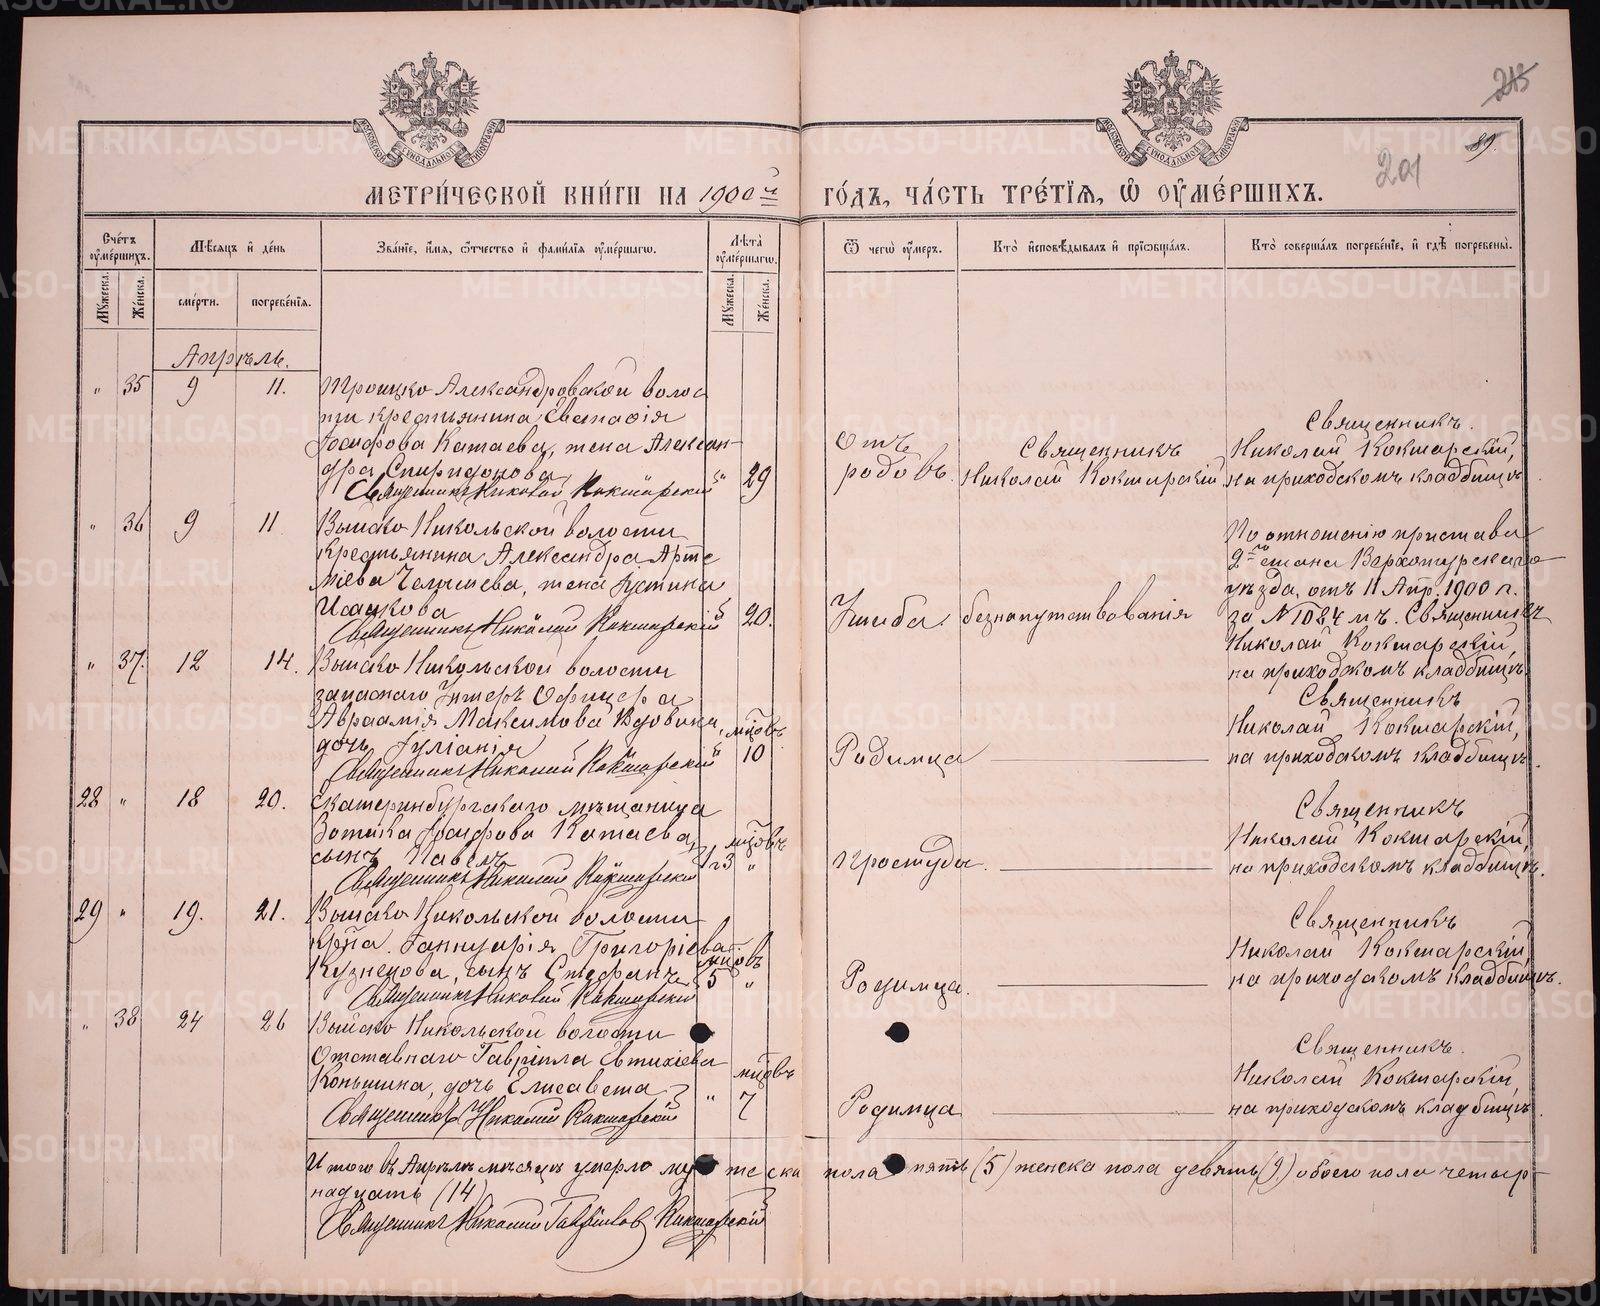 МЕТРИ́ЧЕСКОЙ КНИ́ГИ НА 1900 й ГО́ДЪ, ЧА́СТЬ ТРЕ́ТЇѦ, Ѿ ОУ҆МЕ́РШИХЪ.
245
89.
201
Сче́тъ оу҆ме́ршихъ.
Мѣ́сѧцъ и҆ де́нь
Зва́нїе, и҆́мѧ, ѻ҆́тчество и҆ фами́лїѧ оу҆ме́ршагѡ.
Лѣ́та оу҆ме́ршагѡ.
Ѿ чегѡ̀ оу҆́меръ.
Кто̀ и҆сповѣ́дывалъ и҆ прїѡбща́лъ.
Кто̀ соверша́лъ погребе́нїе, и҆ гдѣ̀ погребены̀.
Мꙋ́жеска. Же́нска.
сме́рти. погребе́нїѧ.
Мꙋ́жеска. Же́нска.
Апрѣль.
" 35 9 11. Троицко Александровской волос
ти крестьянина Евстафія
Іосифова Катаева, жена Алексан-
дра Спиридонова
Священникъ Николай Кокшарскій
" 29
Отъ
родовъ.
Священникъ
Николай Кокшарскій
Священникъ.
Николай Кокшарскій,
на приходскомъ кладбищѣ
" 36 9 11 Выйско Никольской волости
крестьянина Александра Арте
міева Челышева, жена Іустина
Исаакова
Священникъ Николай Кокшарскій
" 20.
Ушиба.
безнапутствованія
По отношенію пристава
2го стана Верхотурскаго
уѣзда, отъ 11 Апр. 1900 г.
за №1084 мъ. Священникъ
Николай Кокшарскій,
на приходскомъ кладбищѣ.
" 37. 12 14. Выйско Никольской волости
запаснаго Унтеръ Офицера
Авраамія Максимова Вдовина,
дочь Іуліанія
Священникъ Николай Кокшарскій
" мцовъ
10
Родимца
Священникъ
Николай Кокшарскій,
на приходскомъ кладбищѣ.
28 " 18 20. Екатеринбургскаго мѣщанина
Іосифова Катаева,
сынъ Павелъ
Священникъ Николай Кокшарскій
мцовъ
"
Простуды.
Священникъ
Николай Кокшарскій,
на приходскомъ кладбищѣ.
29 " 19. 21. Выйско Никольской волости
крна. Іаннуарія Григоріева
Кузнецова, сынъ Стефанъ
Священникъ Николай Кокшарскій
мцовъ
5 "
Родимца.
Священникъ
Николай Кокшарскій,
на приходскомъ кладбищѣ.
" 38 24 26 Выйско Никольской волости
Отставнаго Гавріила Евтихіева
Коньшина, дочь Елисавета
Священникъ Николай Кокшарскій
мцовъ
" 7
Родимца
Священникъ.
Николай Кокшарскій,
на приходскомъ кладбищѣ.
Итого въ Апрѣлѣ мѣсяцѣ умерло мужеска пола пять (5) женска пола девять (9) обоего пола четыр-
надцать (14)
Священникъ Николай Гавріиловъ Кокшарскій
METRIKI.GASO-URAL.RU